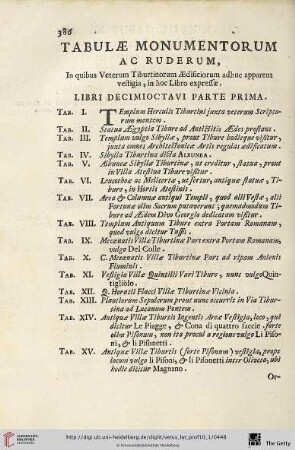 386
TABULÆ MONUMENTORUM
AC RUDERUM,
In quibus Veterum Tiburtinorum Ædificiorum adhuc apparent
vestigia, in hoc Libro expressæ.
LIBRI DECIMIOCTAVI PARTE PRIMA.
TAB. I. TEmplum Herculis Tiburtini juxta veterum Scripto-
rum mentem.
TAB. II. Statua Ægyptia Tibure ad Antistitis Ædes prostans.
TAB. III. Templum vulgo Sibyllæ, prout Tibure hodieque visitur,
juxta omnes Architectonicæ Artis regulas ædificatum.
TAB. IV. Sibylla Tiburtina dicta ALBUNEA.
TAB. V. Albunea Sibylla Tiburtina, ut creditur, statua, prout
in Villa Atestina Tibure visitur.
TAB. VI. Leucothea ac Melicerta, ut fertur, antiqua statua, Ti-
bure, in Hortis Atestinis.
TAB. VII. Ara & Columna antiqui Templi, quod alii Vestæ, alii
Fortunæ olim Sacrum putaverunt; quemadmodum Tibure
ad Ædem Divo Georgio dedicatam visitur.
TAB. VIII. Templum Antiquum Tibure extra Portam Romanam,
quod vulgo dicitur Tussis.
TAB. IX. Mecænatis Villæ Tiburtinæ Pars extra Portam Romanam,
vulgo Del Colle.
TAB. X. C. Mecænatis Villæ Tiburtinæ Pars ad ripam Anienis
Fluminis.
TAB. XI. Vestigia Villæ Quintilii Vari Tibure, nunc vulgo Quin-
tigliolo.
TAB. XII. Q. Horatii Flacci Villæ Tiburtinæ Vicinia.
TAB. XIII. Plautiorum Sepulcrum prout nunc occurrit in Via Tibur-
tina ad Lucanum Pontem.
TAB. XIV. Antiquæ Villæ Tiburtis Ingentis Area Vestigia, loco, qui
dicitur Le Piagge, & Cona di quattro faccie, forte
olim Pisonum, non ita procul a regione vulgo Li Piso-
ni, & li Pisonetti.
TAB. XV. Antiquæ Villæ Tiburtis (forte Pisonum) vestigia, prope
locum vulgo li Pisoni, & li Pisonetti inter Oliveta, ubi
hodie dicitur Magnano.
Or-
http://digi.ub.uni-heidelberg.de/diglit/vetus_lat_prof10_1/0448
© Universitätsbibliothek Heidelberg
The Getty